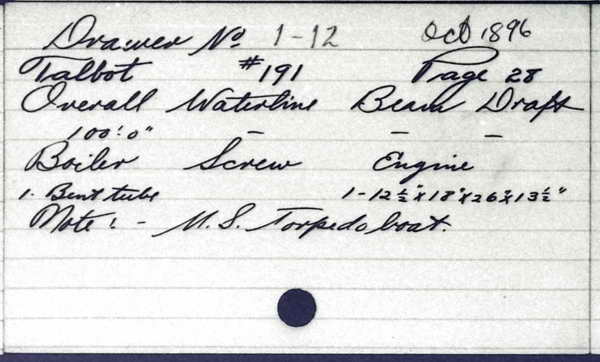 Drawer No 1-12 Oct 1896
Talbot #191 Page 28
Overall Waterline Beam Draft
100'.0" - - -
Boiler Screw Engine
1. Bent tube 1-12½"x18"x26"x13½"
Note: - U.S. Torpedo boat.